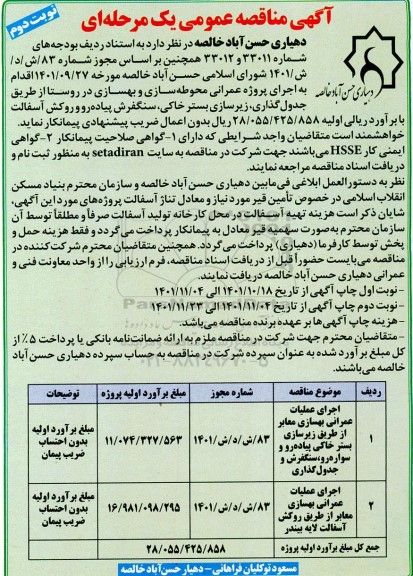 آگهی مناقصه عمومی یک مرحله‌ای
نوبت دوم
دهیاری حسن آباد خالصه
دهیاری حسن آباد خالصه در نظر دارد به استناد ردیف بودجه‌های
شماره ۳۳۰۱۱ و ۳۳۰۱۲ همچنین بر اساس مجوز شماره ۸۳/ش/د/
ش/۱۴۰۱ شورای اسلامی حسن آباد خالصه مورخه ۱۴۰۱/۰۹/۲۷ اقدام
به اجرای پروژه عمرانی محوطه‌سازی و بهسازی در روستا از طریق
جدول‌گذاری، زیرسازی بستر خاکی، سنگفرش پیاده‌رو و روکش آسفالت
با برآورد ریالی اولیه ۲۸/۰۵۵/۴۲۵/۸۵۸ ریال بدون اعمال ضریب پیشنهادی پیمانکار نماید.
خواهشمند است متقاضیان واجد شرایطی که دارای ۱-گواهی صلاحیت پیمانکار ۲-گواهی
ایمنی کار HSSE می‌باشند جهت شرکت در مناقصه به سایت setadiran به منظور ثبت نام و
دریافت اسناد مناقصه مراجعه نمایند.
نظر به دستورالعمل ابلاغی فی‌مابین دهیاری حسن آباد خالصه و سازمان محترم بنیاد مسکن
انقلاب اسلامی در خصوص تأمین قیر مورد نیاز و معادل تناژ آسفالت پروژه‌های مورد این آگهی،
شایان ذکر است هزینه تهیه آسفالت در محل کارخانه تولید آسفالت صرفاً و مطلقاً توسط آن
سازمان محترم به‌صورت سهمیه قیر معادل به پیمانکار پرداخت می‌گردد و فقط هزینه حمل و
پخش توسط کارفرما (دهیاری) پرداخت می‌گردد. همچنین متقاضیان محترم شرکت‌کننده در
مناقصه می‌بایست حضوراً قبل از دریافت اسناد مناقصه، فرم ارزیابی را از واحد معاونت فنی و
عمرانی دهیاری حسن آباد خالصه دریافت نمایند.
- نوبت اول چاپ آگهی از تاریخ ۱۴۰۱/۱۰/۱۸ الی ۱۴۰۱/۱۱/۰۴
- نوبت دوم چاپ آگهی از تاریخ ۱۴۰۱/۱۱/۰۴ الی ۱۴۰۱/۱۱/۲۳
- هزینه چاپ آگهی‌ها بر عهده برنده مناقصه می‌باشد.
- متقاضیان محترم جهت شرکت در مناقصه ملزم به ارائه ضمانت‌نامه بانکی یا پرداخت ۵٪ از
کل مبلغ برآورد شده به عنوان سپرده شرکت در مناقصه به حساب سپرده دهیاری حسن آباد
خالصه می‌باشند.
ردیف موضوع مناقصه شماره مجوز مبلغ برآورد اولیه پروژه توضیحات
۱ اجرای عملیات عمرانی بهسازی معابر از طریق زیرسازی بستر خاکی پیاده‌رو و سواره‌رو، سنگفرش و جدول‌گذاری ۸۳/ش/د/ش/۱۴۰۱ ۱۱/۰۷۴/۳۲۷/۵۶۳ مبلغ برآورد اولیه بدون احتساب ضریب پیمان
۲ اجرای عملیات عمرانی بهسازی معابر از طریق روکش آسفالت لایه بیندر ۸۳/ش/د/ش/۱۴۰۱ ۱۶/۹۸۱/۰۹۸/۲۹۵ مبلغ برآورد اولیه بدون احتساب ضریب پیمان
جمع کل مبلغ برآورد اولیه پروژه ۲۸/۰۵۵/۴۲۵/۸۵۸
مسعود توکلیان فراهانی - دهیار حسن‌آباد خالصه